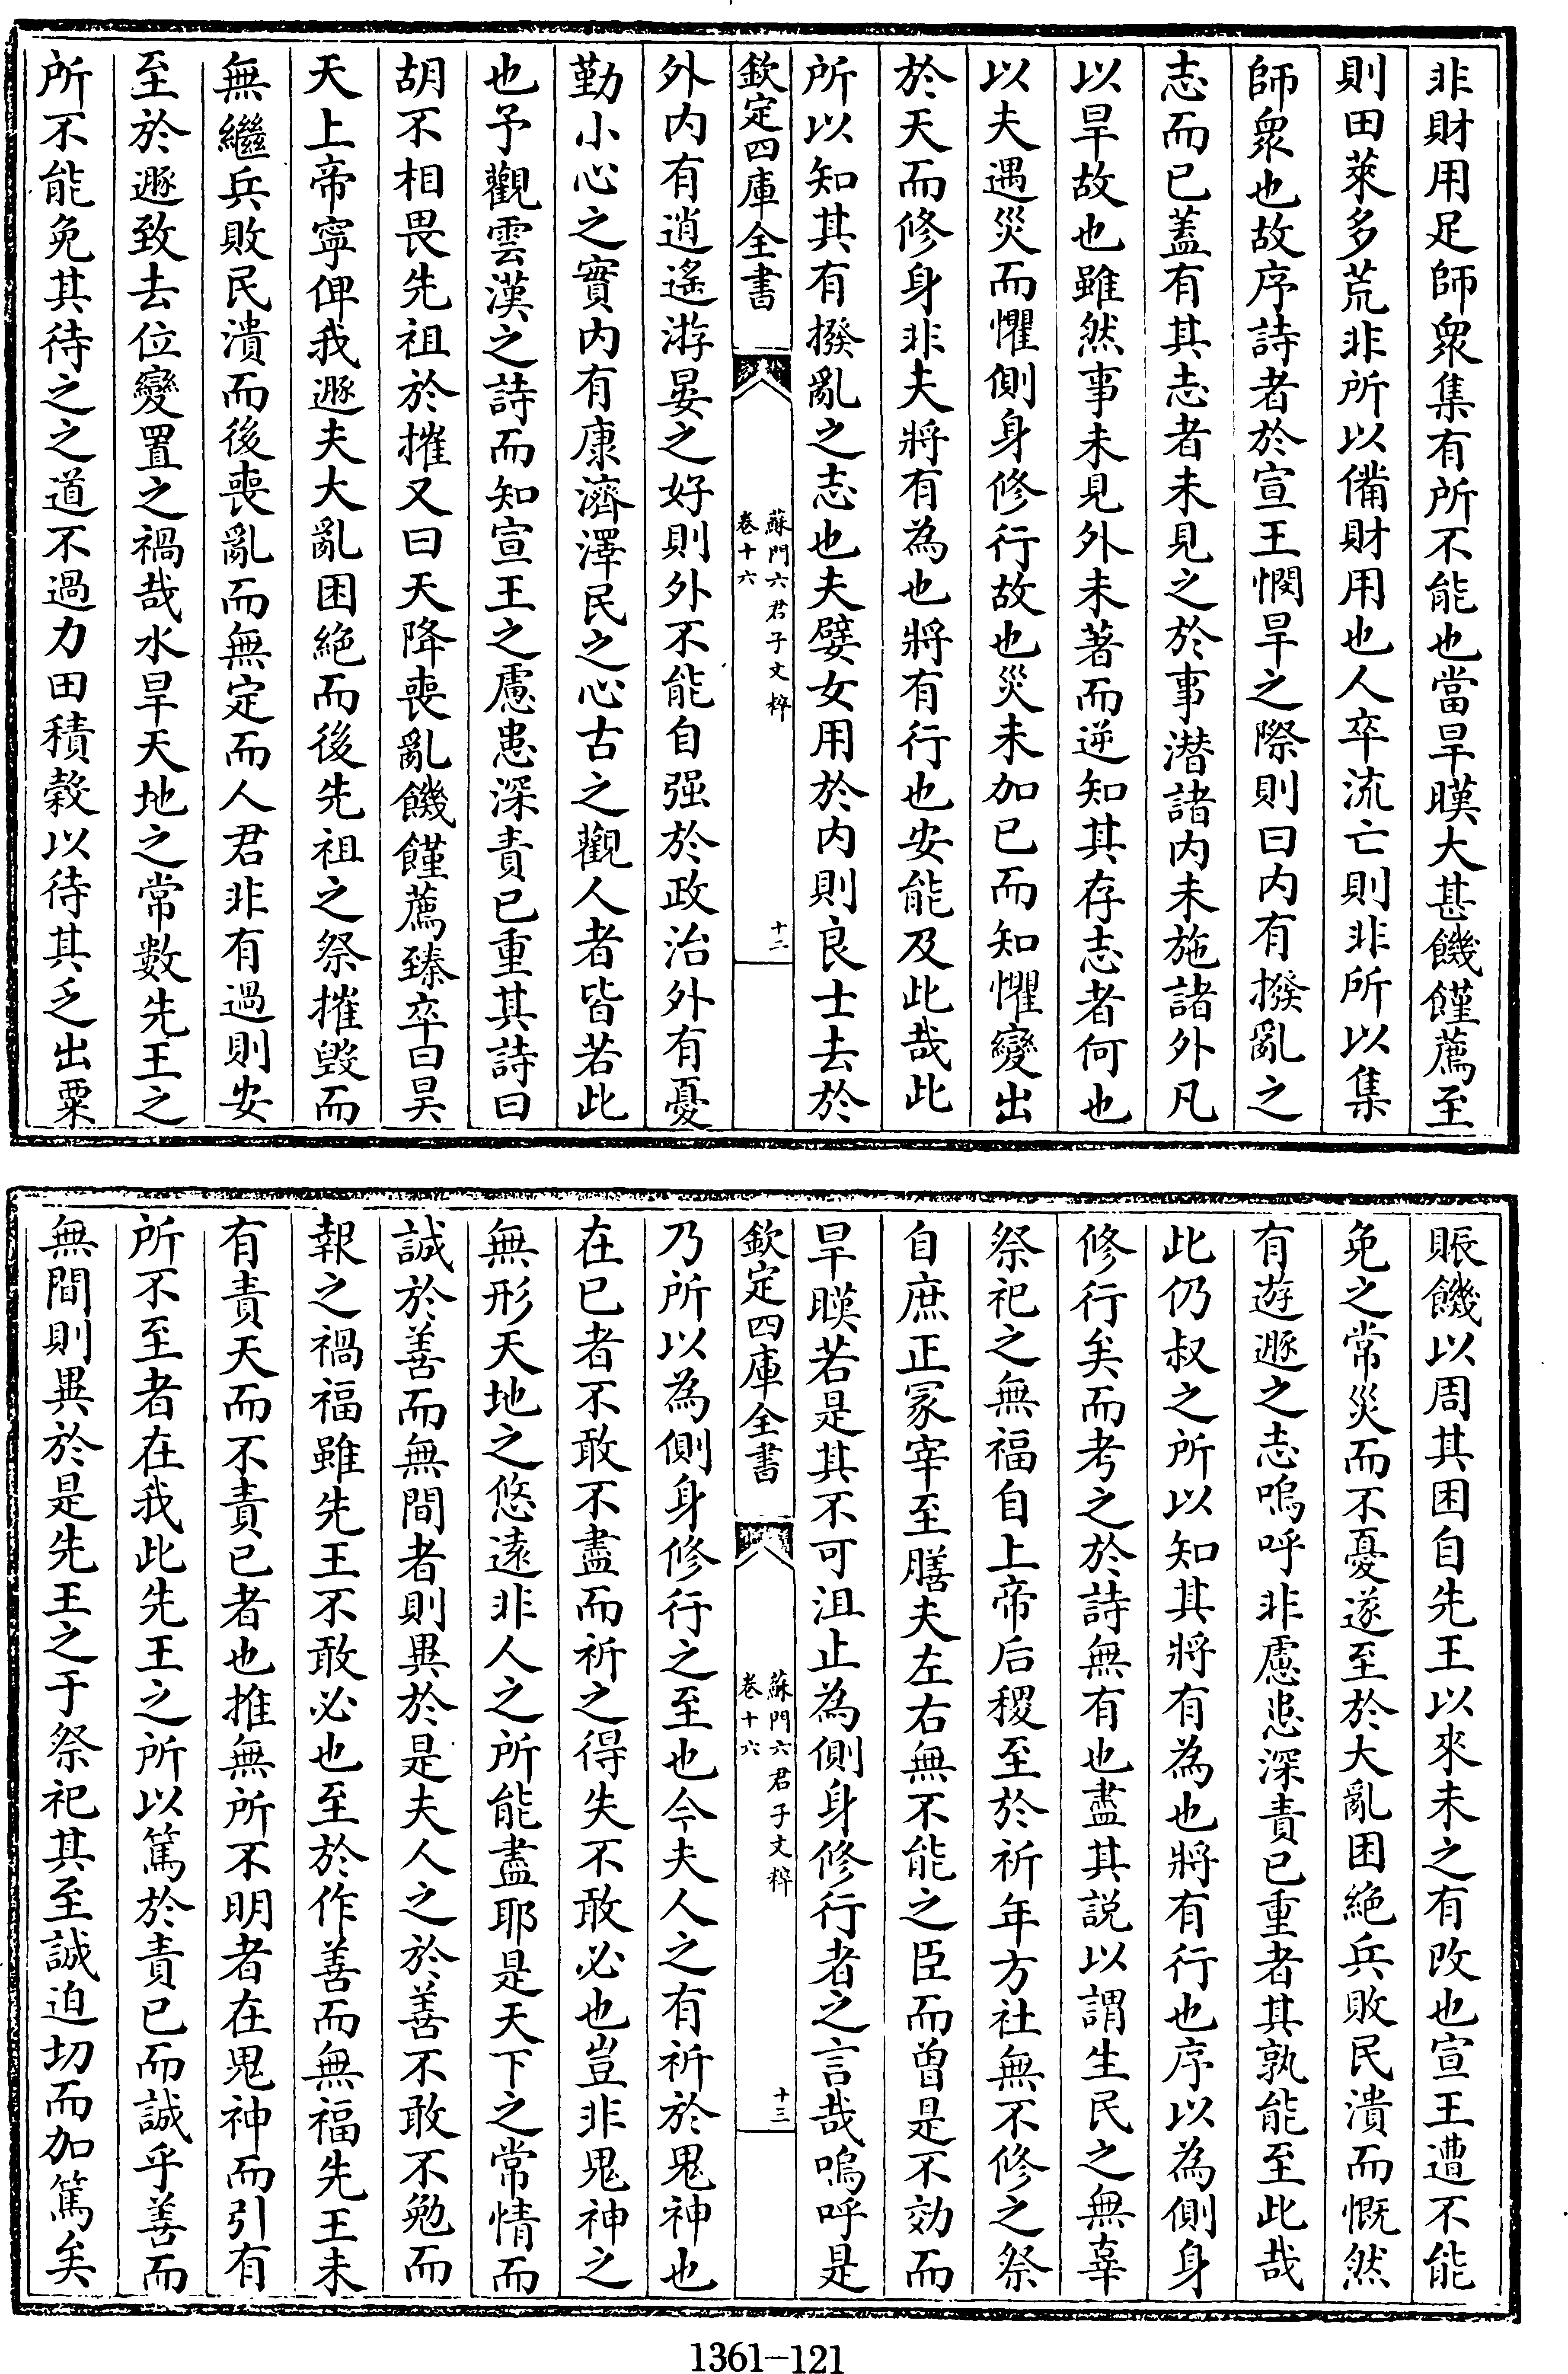 非財用足師衆集有所不能也當旱暵大甚饑饉薦至
則田萊多荒非所以備財用也人卒流亡則非所以集
師衆也故序詩者於宣王憫旱之際則曰内有撥亂之
志而已蓋有其志者未見之於事潛諸内未施諸外凡
以旱故也雖然事未見外未著而逆知其存志者何也
以夫遇災而懼側身修行故也災未加已而知懼變出
於天而修身非夫將有為也將有行也安能及此哉此
所以知其有撥亂之志也夫嬖女用於内則良士去於
欽定四庫全書
蘇門六君子文粹
卷十六
十二
外内有逍遙游晏之好則外不能自强於政治外有憂
勤小心之實内有康濟澤民之心古之觀人者皆若此
也予觀雲漢之詩而知宣王之慮患深責已重其詩曰
胡不相畏先祖於摧又曰天降喪亂饑饉薦臻卒曰昊
天上帝寜俾我遯夫大亂困絶而後先祖之祭摧毁而
無繼兵敗民潰而後喪亂而無定而人君非有過則安
至於遯致去位變置之禍哉水旱天地之常數先王之
所不能免其待之之道不過力田積穀以待其乏出粟
賑饑以周其困自先王以來未之有改也宣王遭不能
免之常災而不憂遂至於大亂困絶兵敗民潰而慨然
有遊遯之志嗚呼非慮患深責已重者其孰能至此哉
此仍叔之所以知其將有為也將有行也序以為側身
修行矣而考之於詩無有也盡其説以謂生民之無辜
祭祀之無福自上帝后稷至於祈年方社無不修之祭
自庶正冢宰至膳夫左右無不能之臣而曽是不効而
旱暵若是其不可沮止為側身修行者之言哉嗚呼是
欽定四庫全書
蘇門六君子文粹
卷十六
十三
乃所以為側身修行之至也今夫人之有祈於鬼神也
在已者不敢不盡而祈之得失不敢必也豈非鬼神之
無形天地之悠遠非人之所能盡耶是天下之常情而
誠於善而無間者則異於是夫人之於善不敢不勉而
報之禍福雖先王不敢必也至於作善而無福先王未
有責天而不責已者也推無所不明者在鬼神而引有
所不至者在我此先王之所以篤於責已而誠乎善而
無間則異於是先王之于祭祀其至誠迫切而加篤矣
1361-121